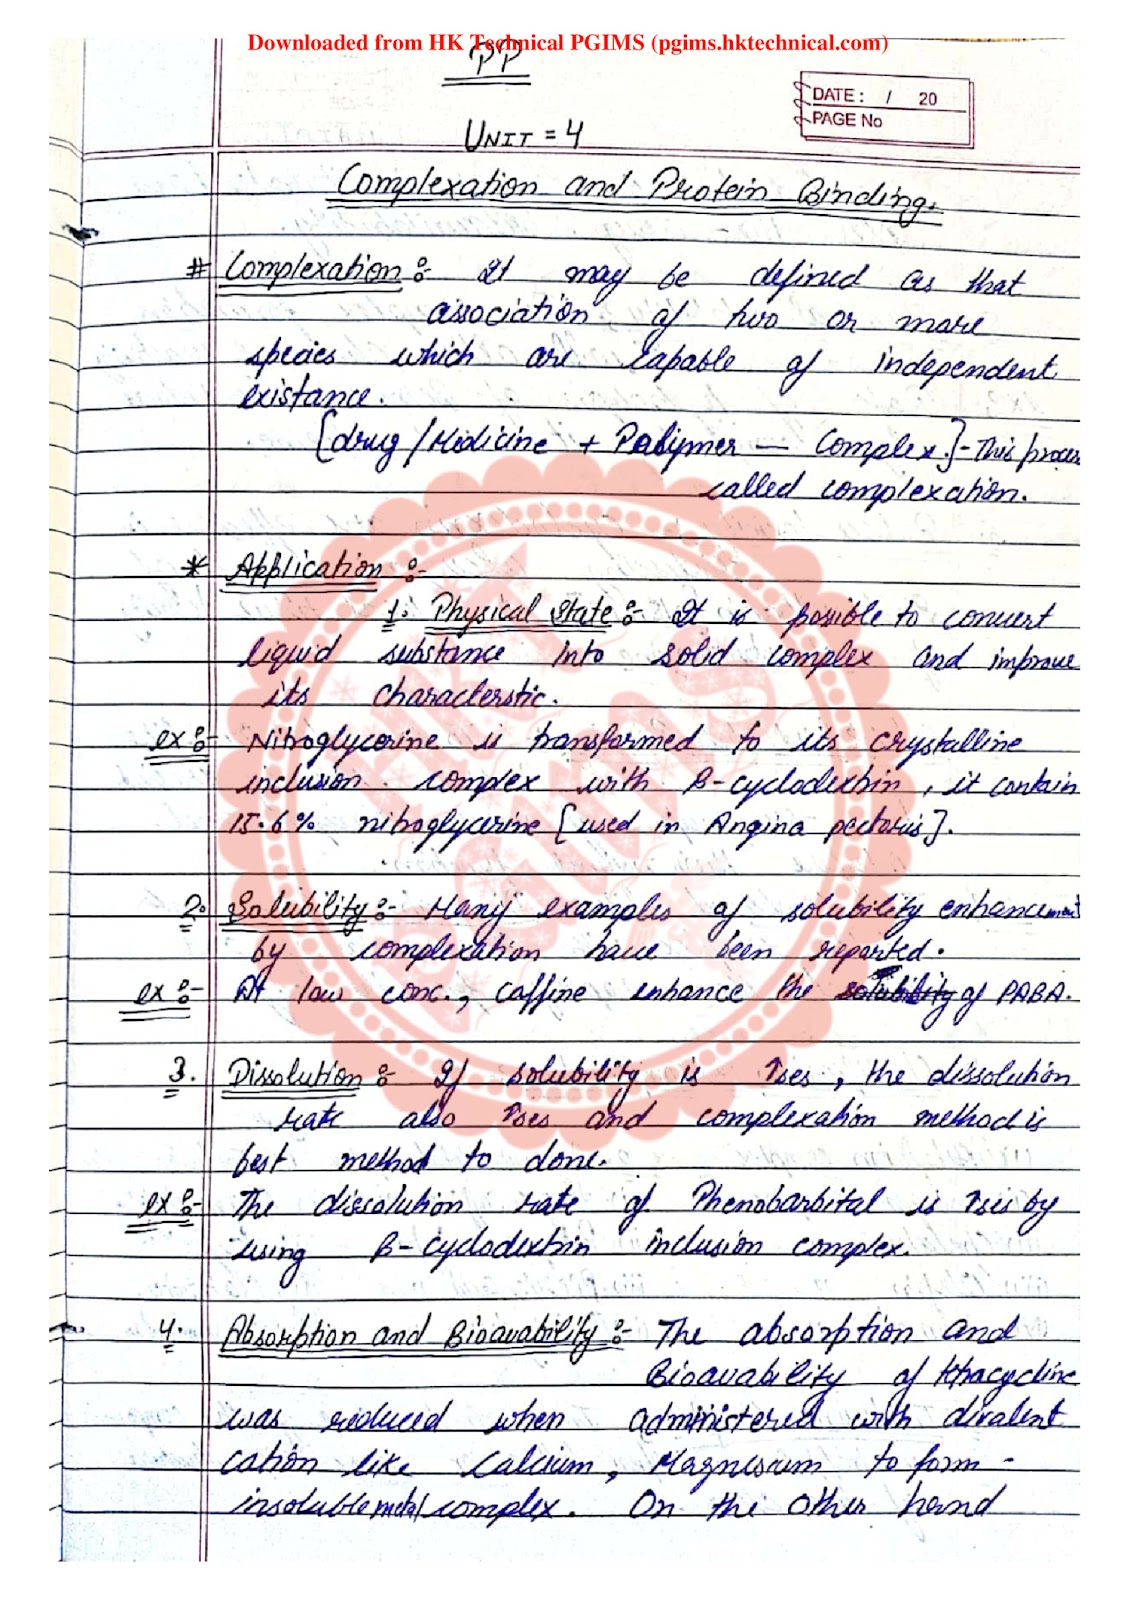 Downloaded from HK Technical PGIMS (pgims.hktechnical.com)
PP
DATE: / 20
PAGE No
UNIT = 4
Complexation and Protein Binding.
# Complexation :- It may be defined as that
association of two or more
species which are capable of independent
existance.
[drug/Medicine + Polymer — Complex.]- This proces
called complexation.
* Application :-
1. Physical State :- It is possible to convert
liquid substance into solid complex and improve
its characterstic.
ex :- Nitroglycerine is transformed to its crystalline
inclusion complex with β-cyclodextrin, it contain
15.6% nitroglycerine [used in Angina pectoris].
2. Solubility :- Many examples of solubility enhancement
by complexation have been reported.
ex :- At low conc., caffine enhance the solubility of PABA.
3. Dissolution :- If solubility is ↑ses, the dissolution
rate also ↑ses and complexation method is
best method to done.
ex :- The dissolution rate of Phenobarbital is ↑ses by
using β-cyclodextrin inclusion complex.
4. Absorption and Bioavability :- The absorption and
Bioavability of tetracycline
was reduced when administered with divalent
cation like Calcium, Magnesium to form -
insoluble metal complex. On the other hand